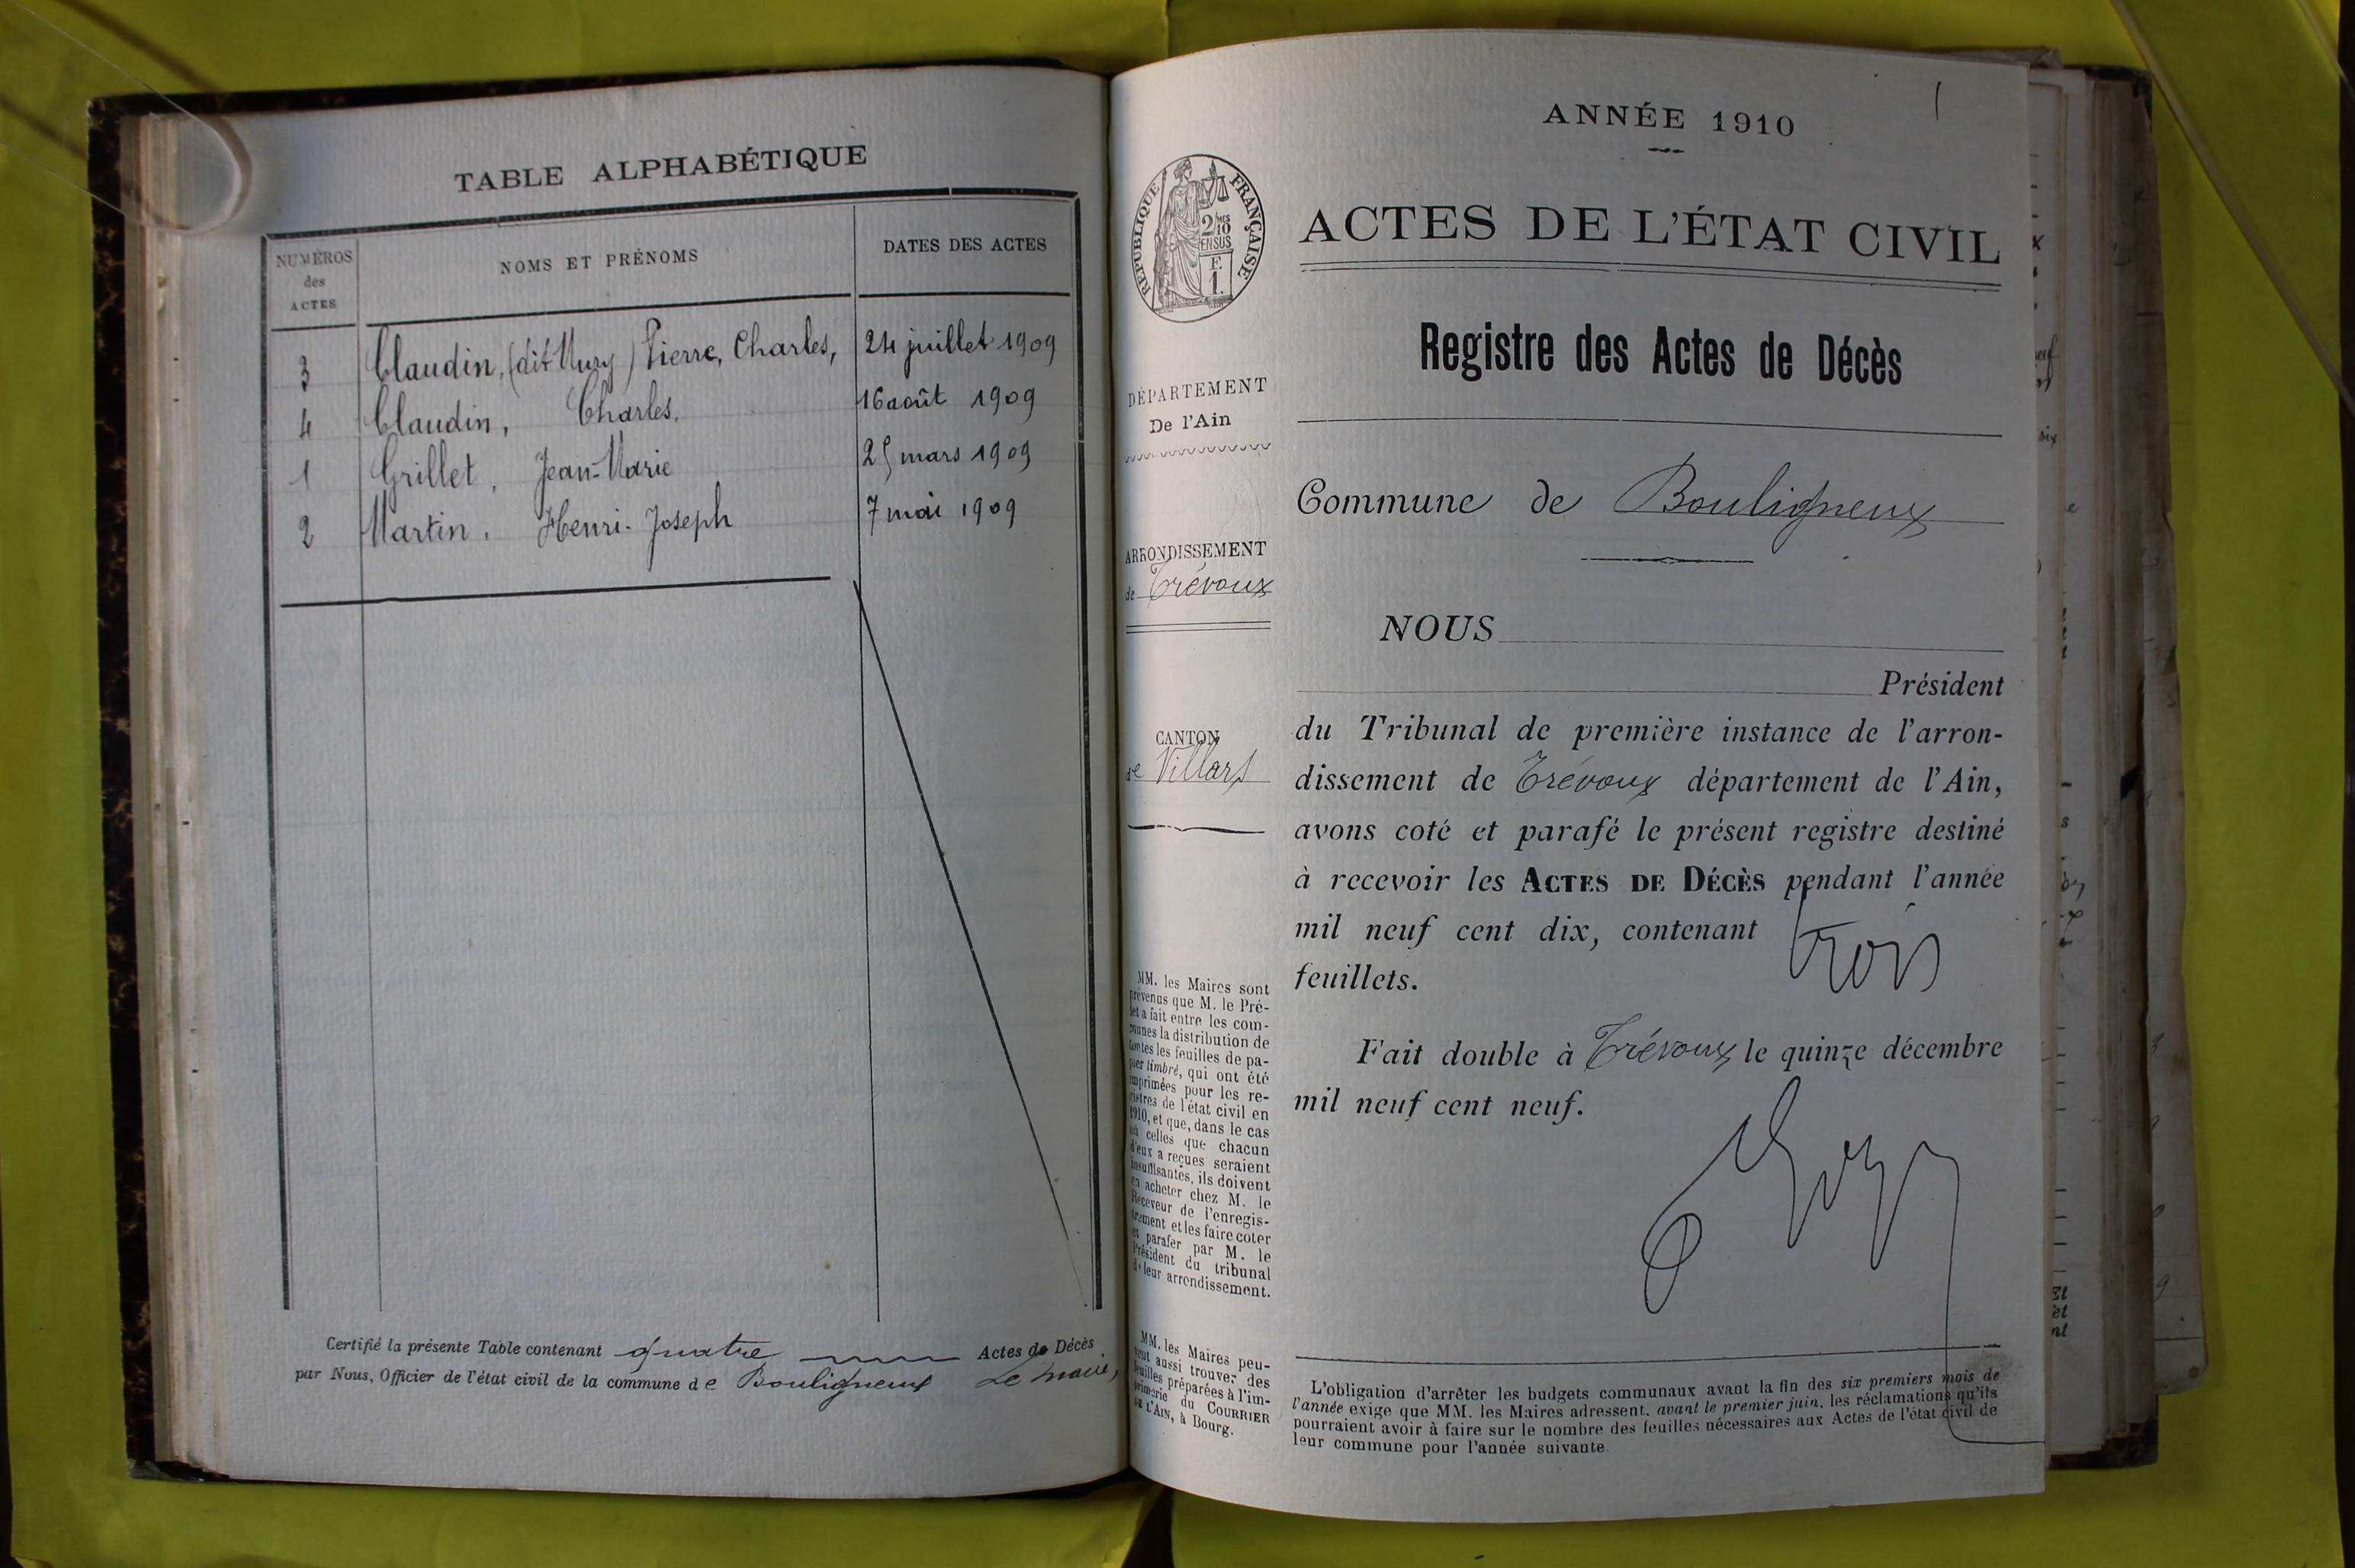 TABLE ALPHABÉTIQUE
NUMÉROS
des
ACTES
NOMS ET PRÉNOMS
DATES DES ACTES
3 Claudin, (dit Mury) Pierre, Charles, 24 juillet 1909
4 Claudin, Charles. 16 août 1909
1 Grillet, Jean-Marie 25 mars 1909
2 Martin. Henri-Joseph 7 mai 1909
Certifié la présente Table contenant quatre Actes de Décès
par Nous, Officier de l'état civil de la commune de Bouligneux Le Maire,
ANNÉE 1910
1
RÉPUBLIQUE FRANÇAISE
2/10
EN SUS
F.
1.
ACTES DE L'ÉTAT CIVIL
Registre des Actes de Décès
DÉPARTEMENT
De l'Ain
ARRONDISSEMENT
de Trévoux
CANTON
de Villars
MM. les Maires sont
prévenus que M. le Pré-
fet a fait entre les com-
munes la distribution de
toutes les feuilles de pa-
pier timbré, qui ont été
imprimées pour les re-
gistres de l'état civil en
1910, et que, dans le cas
où celles que chacun
d'eux a reçues seraient
insuffisantes, ils doivent
en acheter chez M. le
Receveur de l'enregis-
trement et les faire coter
et parafer par M. le
Président du tribunal
de leur arrondissement.
MM. les Maires peu-
vent aussi trouver des
feuilles préparées à l'im-
primerie du COURRIER
DE L'AIN, à Bourg.
Commune de Bouligneux
NOUS
Président
du Tribunal de première instance de l'arron-
dissement de Trévoux département de l'Ain,
avons coté et parafé le présent registre destiné
à recevoir les ACTES DE DÉCÈS pendant l'année
mil neuf cent dix, contenant trois
feuillets.
Fait double à Trévoux le quinze décembre
mil neuf cent neuf.
L'obligation d'arrêter les budgets communaux avant la fin des six premiers mois de
l'année exige que MM. les Maires adressent, avant le premier juin, les réclamations qu'ils
pourraient avoir à faire sur le nombre des feuilles nécessaires aux Actes de l'état civil de
leur commune pour l'année suivante.